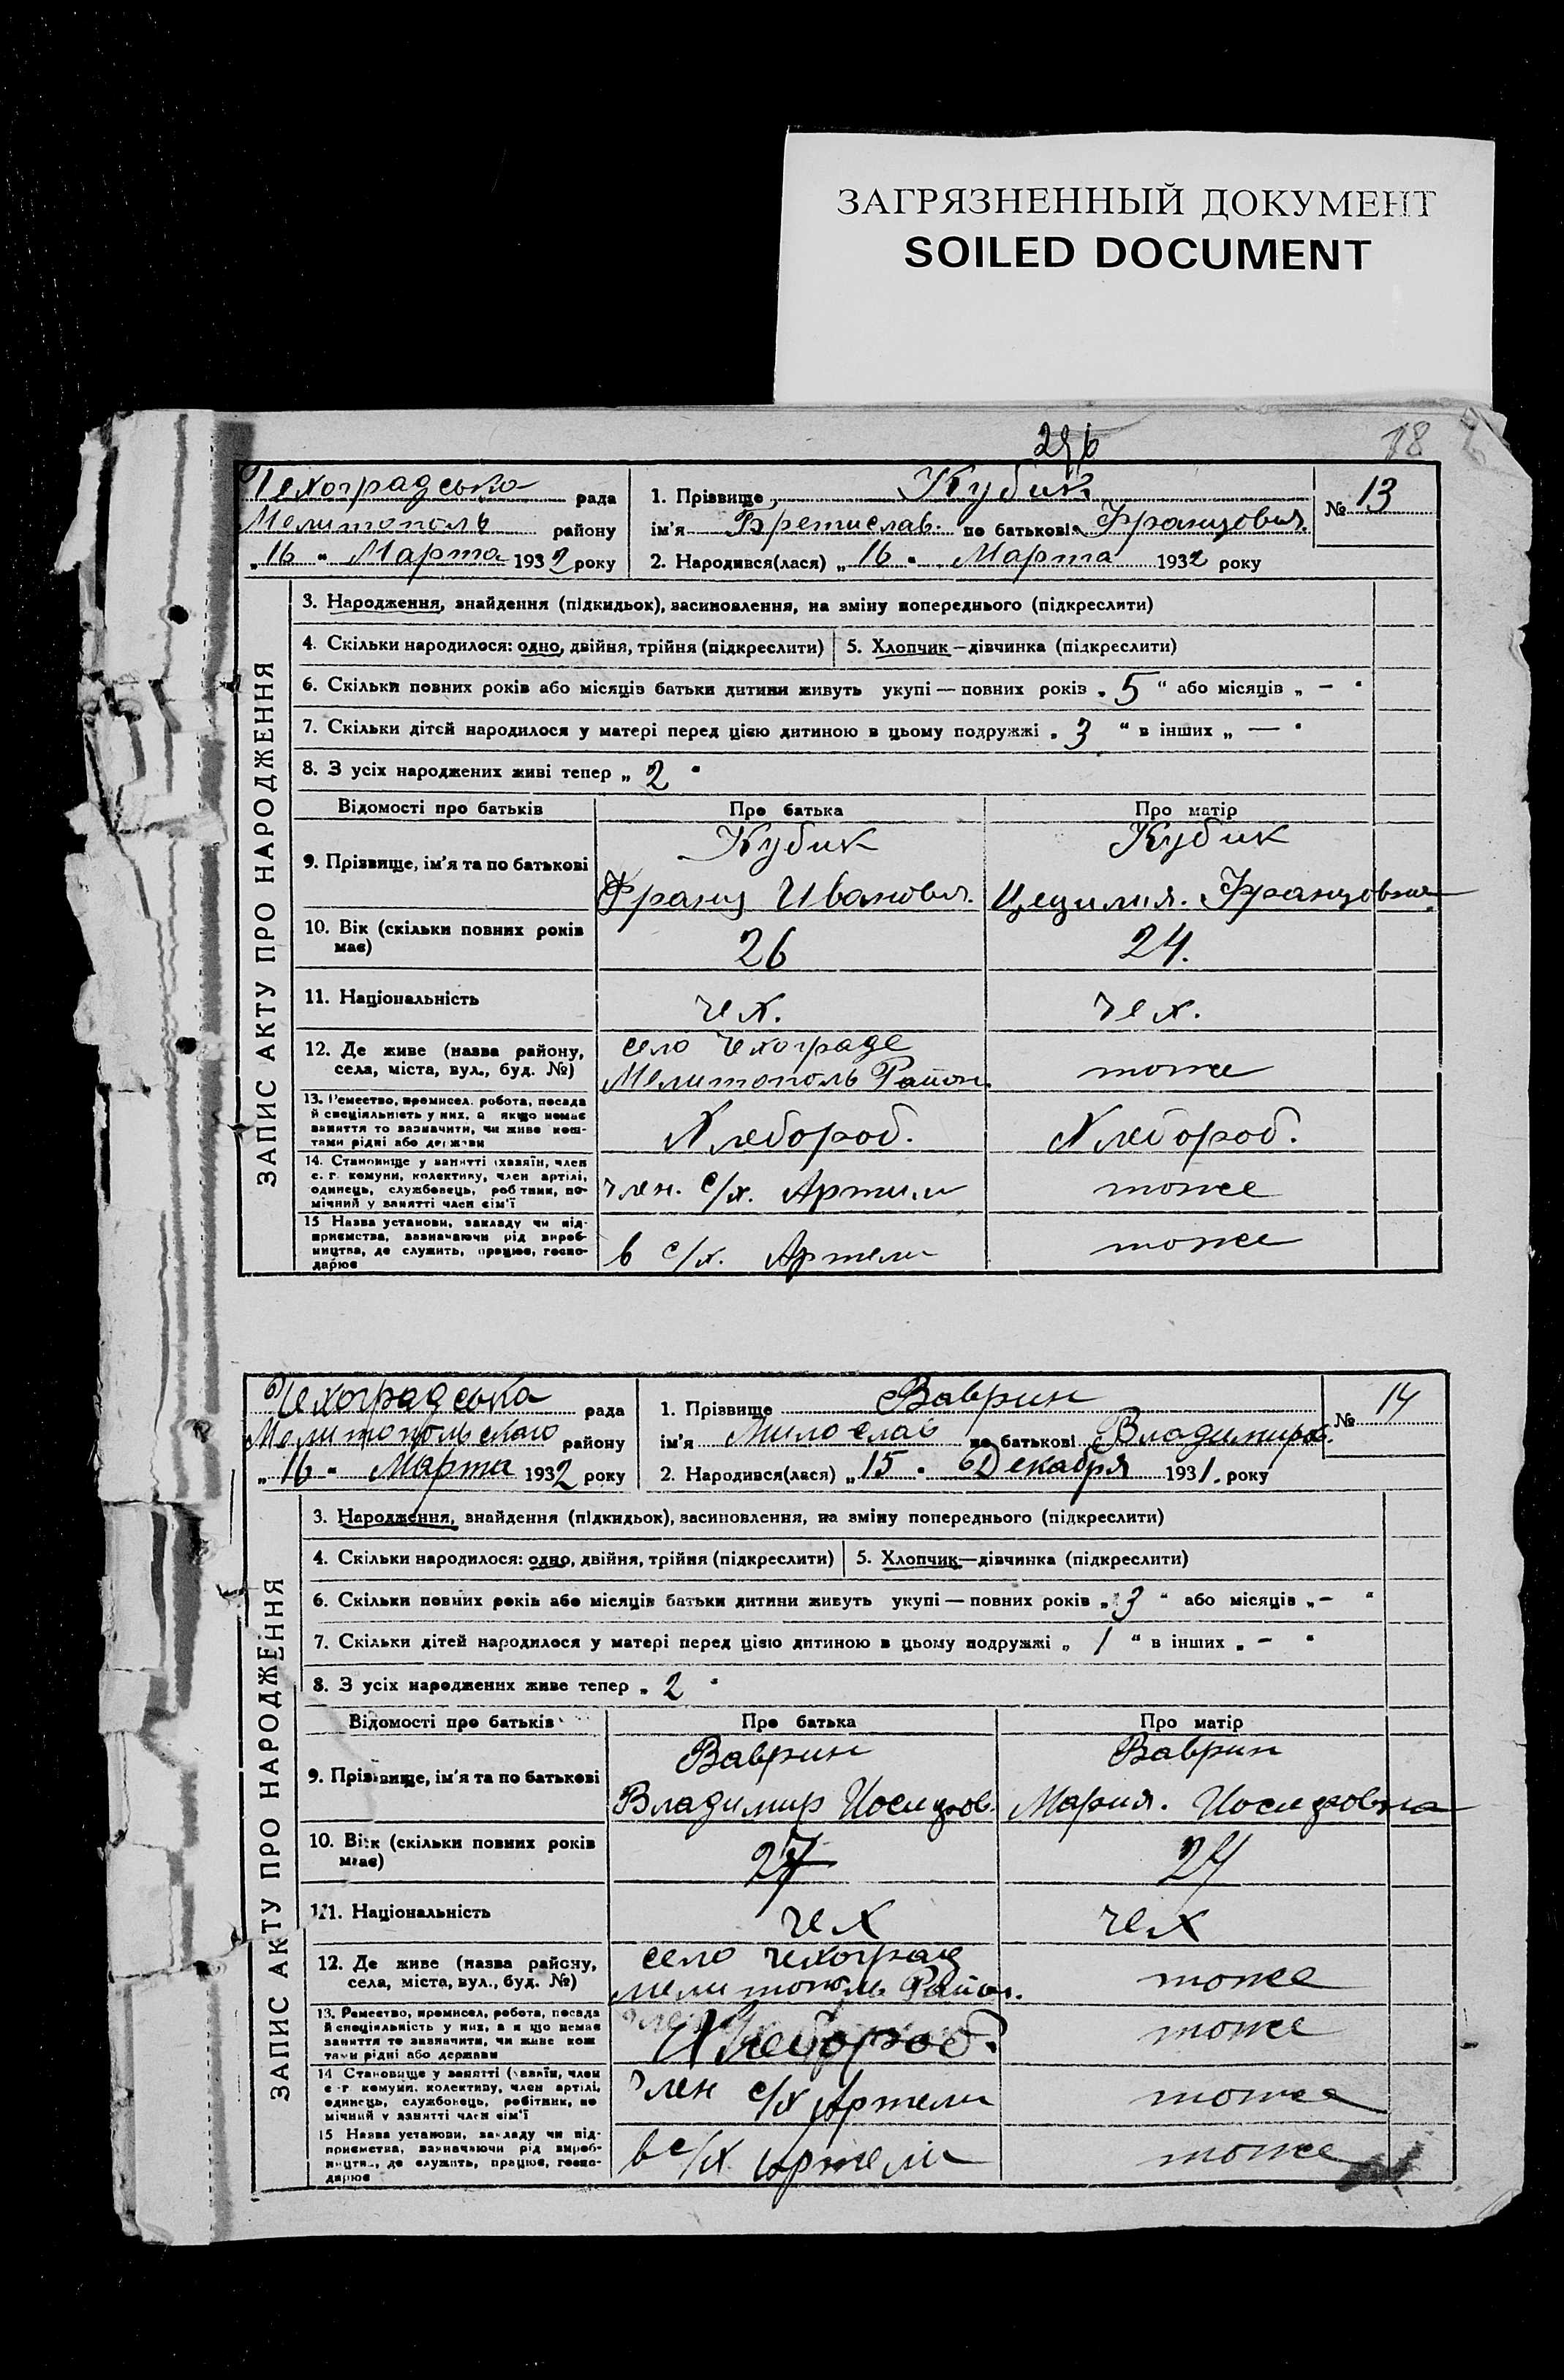 ЗАГРЯЗНЕННЫЙ ДОКУМЕНТ
SOILED DOCUMENT
18
Чехоградська рада
Мелитополь району
„16" Марта 1932 року
1. Прізвище Кубик
ім'я Бретислав. по батькові Францович.
2. Народився(лася) „16" Марта 1932 року
№ 13
ЗАПИС АКТУ ПРО НАРОДЖЕННЯ
3. Народження, знайдення (підкидьок), засиновлення, на зміну попереднього (підкреслити)
4. Скільки народилося: одно, двійня, трійня (підкреслити) 5. Хлопчик—дівчинка (підкреслити)
6. Скільки повних років або місяців батьки дитини живуть укупі — повних років „5" або місяців „—"
7. Скільки дітей народилося у матері перед цією дитиною в цьому подружжі „3" в інших „—"
8. З усіх народжених живі тепер „2"
Відомості про батьків Про батька Про матір
9. Прізвище, ім'я та по батькові Кубик Франц Иванович. Кубик Цецилия. Францовна
10. Вік (скільки повних років має) 26 24.
11. Національність чех. чех.
12. Де живе (назва району, села, міста, вул., буд. №) село Чехограде Мелитополь Район. тоже
13. Ремество, промисел, робота, посада й спеціяльність у них, а якщо немає заняття то зазначити, чи живе коштами рідні або держави Хлебороб. Хлебороб.
14. Становище у занятті (хазяїн, член с. г. комуни, колективу, член артілі, одинець, службовець, робітник, помічний у занятті член сім'ї член. с/х. Артили тоже
15 Назва установи, закладу чи підприємства, зазначаючи рід виробництва, де служить, працює, господарює в с/х. Артели тоже
Чехоградська рада
Мелитопольского району
„16" Марта 1932 року
1. Прізвище Ваврин
ім'я Милослав по батькові Владимиров.
2. Народився(лася) „15" Декабря 1931. року
№ 14
ЗАПИС АКТУ ПРО НАРОДЖЕННЯ
3. Народження, знайдення (підкидьок), засиновлення, на зміну попереднього (підкреслити)
4. Скільки народилося: одно, двійня, трійня (підкреслити) 5. Хлопчик—дівчинка (підкреслити)
6. Скільки повних років або місяців батьки дитини живуть укупі — повних років „3" або місяців „—"
7. Скільки дітей народилося у матері перед цією дитиною в цьому подружжі „1" в інших „—"
8. З усіх народжених живе тепер „2"
Відомості про батьків Про батька Про матір
9. Прізвище, ім'я та по батькові Ваврин Владимир Иосифов. Ваврин Мария. Иосифовна
10. Вік (скільки повних років має) 27
11. Національність чех чех
12. Де живе (назва району, села, міста, вул., буд. №) село Чехоград Мелитополь Район. тоже
13. Ремество, промисел, робота, посада й спеціяльність у них, а якщо немає заняття то зазначити, чи живе коштами рідні або держави Хлебороб. тоже
14 Становище у занятті (хазяїн, член с.-г. комуни, колективу, член артілі, одинець, службовець, робітник, помічний у занятті член сім'ї Член с/х Артели тоже
15 Назва установи, закладу чи підприємства, зазначаючи рід виробництва, де служить, працює, господарює в с/х артели тоже